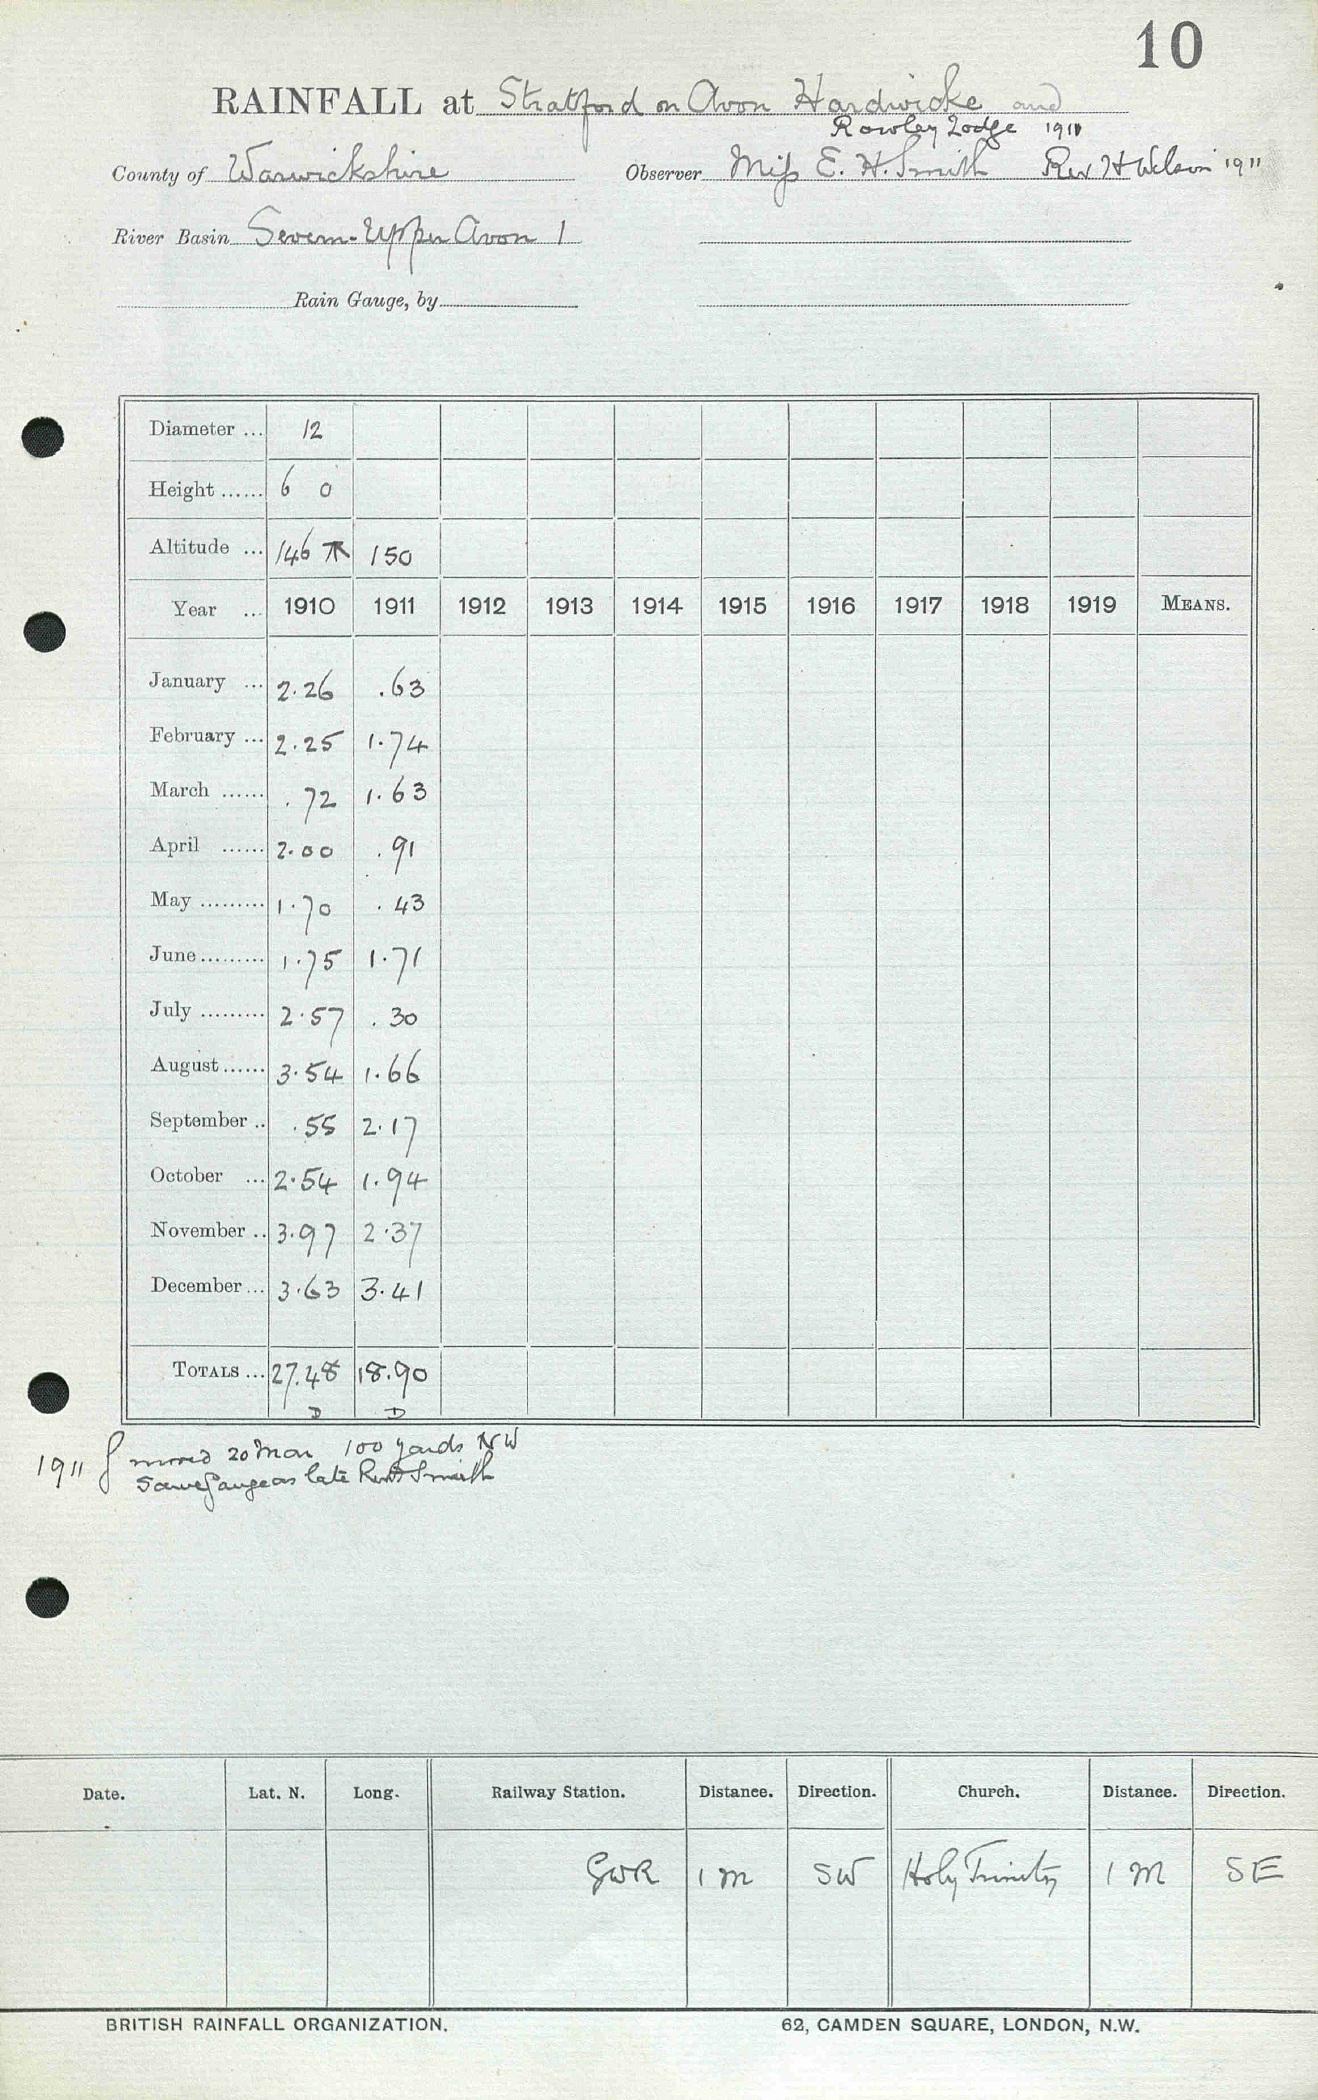 10
RAINFALL at Stratford on Avon Hardwicke and
Rowley Lodge 1911
County of Warwickshire Observer Miss E. H. Smith Rev H Wilson 1911
River Basin Severn-Upper Avon 1
Rain Gauge, by
Diameter ... 12
Height ...... 6 0
Altitude ... 146 150
Year ... 1910 1911 1912 1913 1914 1915 1916 1917 1918 1919 MEANS.
January ... 2.26 .63
February ... 2.25 1.74
March ...... .72 1.63
April ...... 2.00 .91
May ......... 1.70 .43
June ......... 1.75 1.71
July ......... 2.57 .30
August ...... 3.54 1.66
September .. .55 2.17
October ... 2.54 1.94
November .. 3.97 2.37
December ... 3.63 3.41
TOTALS ... 27.48 18.90
D D
1911 { moved 20 Mar 100 yards NW
Same gauge as late Smith
Date. Lat. N. Long. Railway Station. Distance. Direction. Church. Distance. Direction.
GWR 1 m SW Holy Trinity 1 m SE
BRITISH RAINFALL ORGANIZATION. 62, CAMDEN SQUARE, LONDON, N.W.